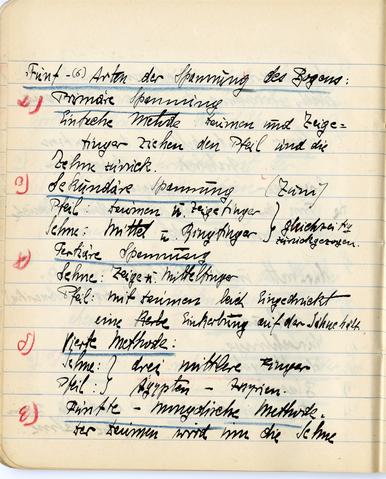 Fünf - (5) Arten der Spannung des Bogens:
Primäre Spannung
Einfache Methode Daumen und Zeige-
finger ziehen den Pfeil und die
Sehne zurück.
Sekundäre Spannung (Zuni)
Pfeil: Daumen u. Zeigefinger } gleichzeitig
Sehne: Mittel u. Ringfinger } zurückgezogen.
Tertiäre Spannung
Sehne: Zeige u. Mittelfinger
Pfeil: mit Daumen leicht Eingedrückt
eine Kerbe Einkerbung auf der Sehne hält
Vierte Methode:
Sehne: } drei mittlere Finger
Pfeil: } Ägypten - Assyrien.
Fünfte - mongolische Methode.
Der Daumen wird um die Sehne